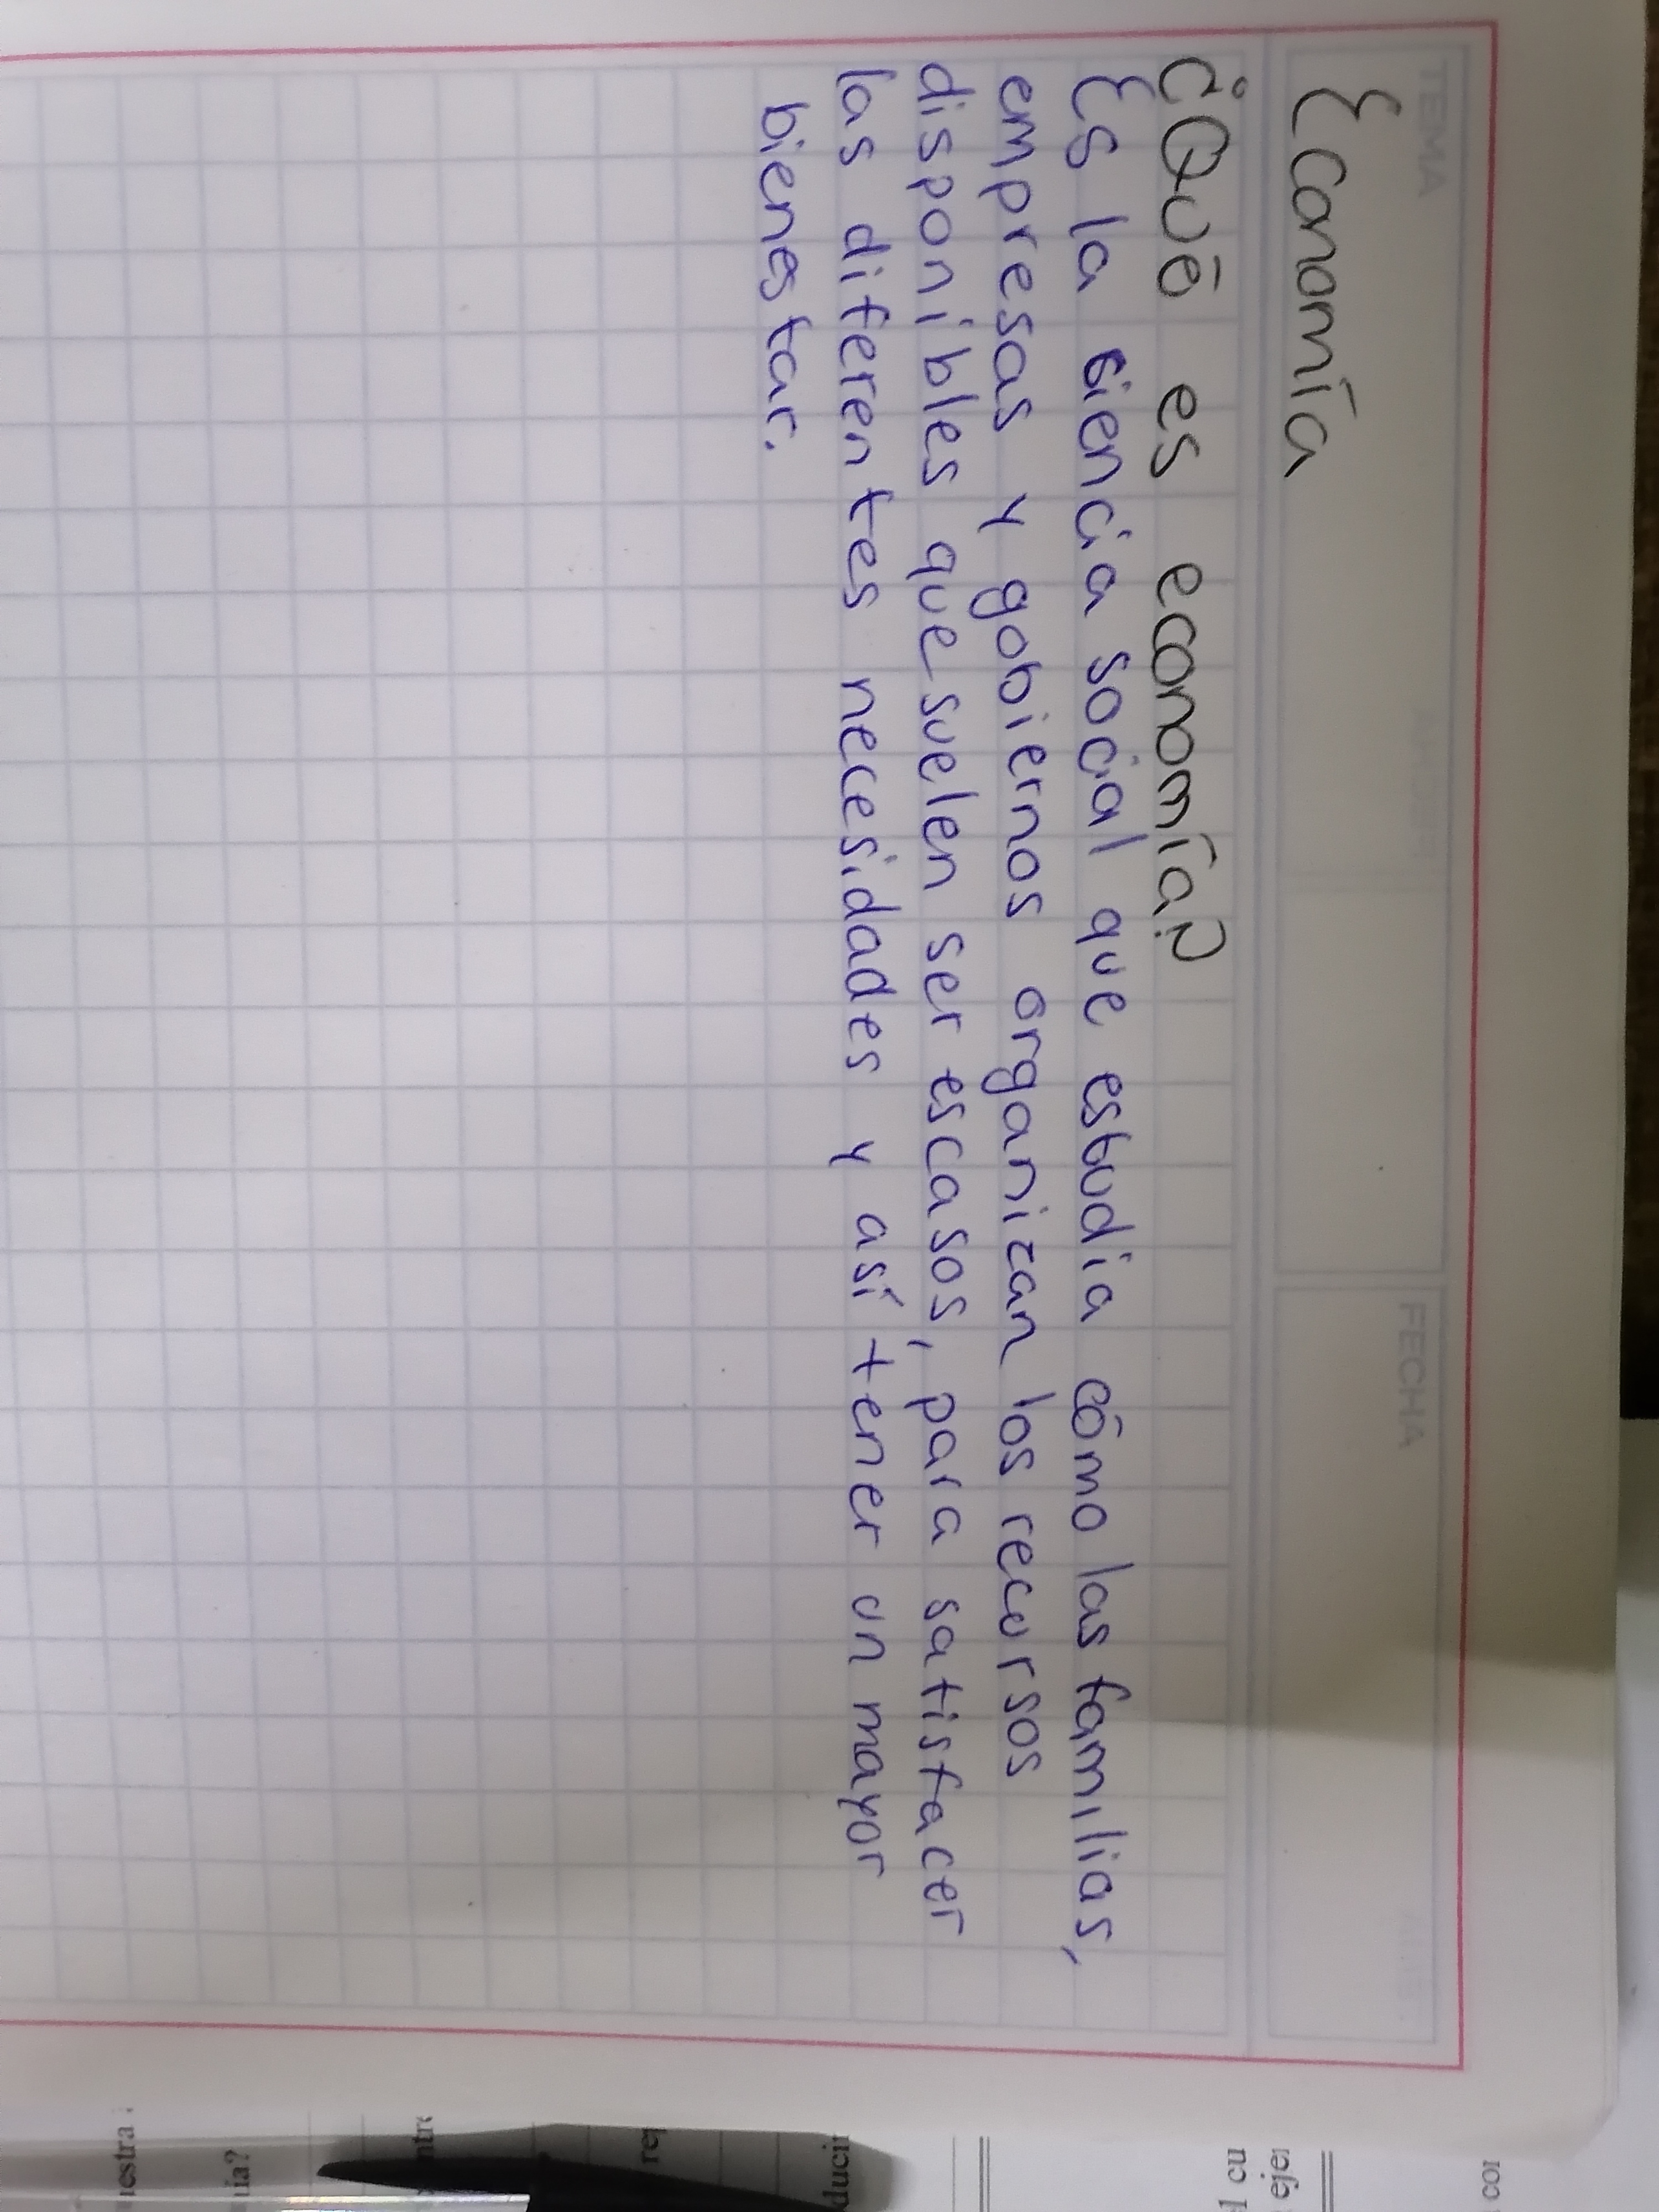 TEMA
FECHA
Economía
¿Qué es economía?
Es la ciencia social que estudia cómo las familias,
empresas y gobiernos organizan los recursos
disponibles que suelen ser escasos, para satisfacer
las diferentes necesidades y así tener un mayor
bienestar.